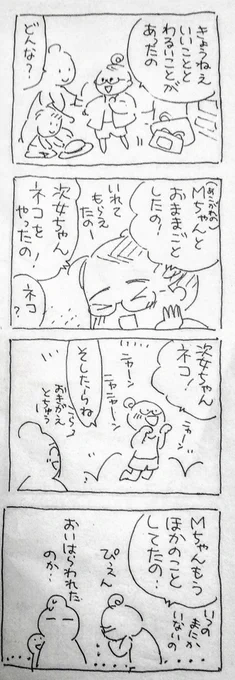 きょうねえ
いいことと
わるいことが
あったの
どんな？
(あこがれの)
Mちゃんと
おままごと
したの！
いれて
もらえ
たのー
次女ちゃん
ネコを！
やったの！
ネコ
？
次女ちゃん
ネコ！
ニャーン
ニャーン
ニャニャーン
そしたらね
おきがえ
とちゅう
Mちゃんもう
ほかのこと
してたの！
いつの
まにか
いないの
ぴえん
おいはらわれた
のか…